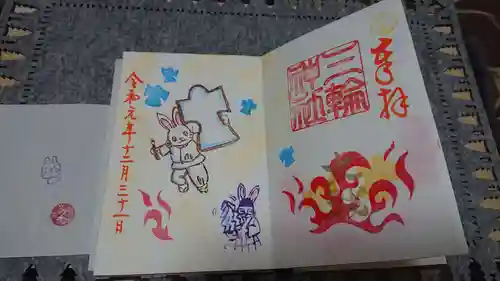 奉拝
三輪
神社
令和元年十二月三十一日